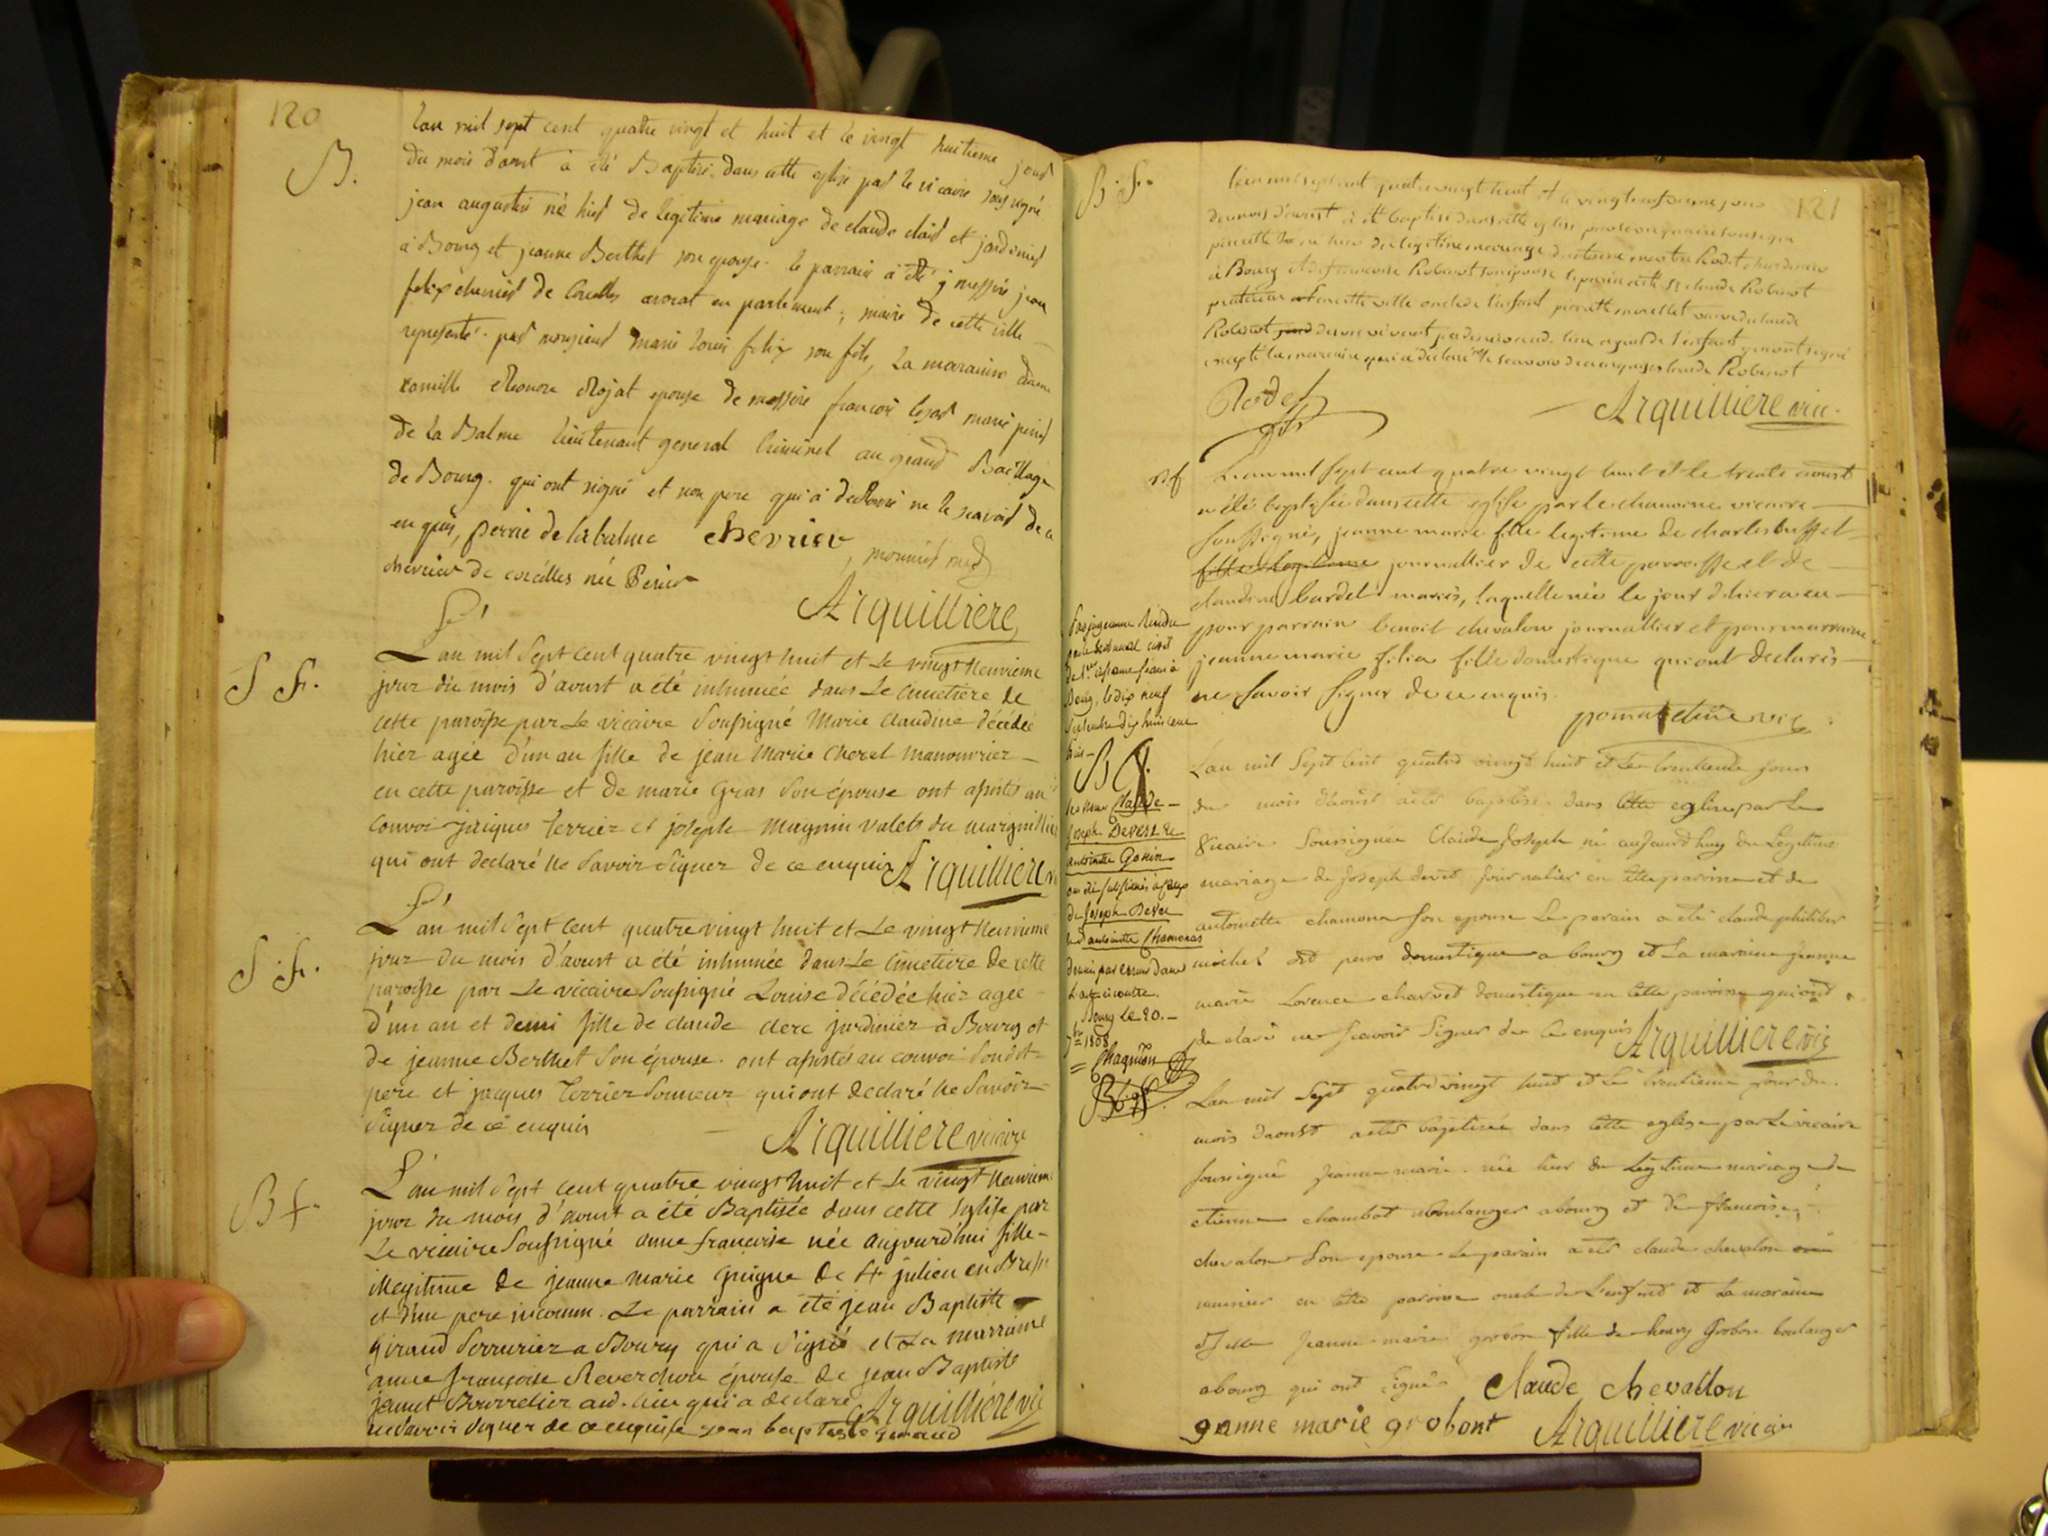 120
B.
L'an mil sept cent quatre vingt et huit et le vingt huitieme jour
du mois d'aout à été Baptisé dans cette eglise par le vicaire soussigné
jean augustin né hier de legitime mariage de claude clair et jardinier
à Bourg et jeanne Berthet son epouse. le parrain à été messire jean
felix chevrier de Corcelles avocat en parlement, maire de cette ville
representé par monsieur marie louis felix son fils, La maraine dame
camille eleonore epouse de messire françois cesar marie perier
de la Balme lieutenant general Criminel au grand Baillage
de Bourg. qui ont signé et non pere qui à declaré ne le scavoir de ce
enquis, perrier de labalme chevrier
chevrier de corcelles née Perier
Arquilliere
S f.
L'an mil Sept cent quatre vingt huit et Le vingt Neuvieme
jour du mois d'aoust a été inhumée dans Le cimetiere de
cette paroisse par Le vicaire Soussigné Marie claudine décédée
hier agée d'un an fille de jean Marie cherel manouvrier
en cette paroisse et de marie Gras Son épouse ont assistés au
convoi jacques terrier et joseph magnin valets du marguillier
qui ont declaré ne Savoir Signer de ce enquis Arquilliere
S. f.
L'an mil Sept cent quatre vingt huit et Le vingt Neuvieme
jour du mois d'aoust a été inhumée dans Le Cimetiere de cette
paroisse par Le vicaire Soussigné Louise décédée hier agée
d'un an et demi fille de claude clerc jardinier à Bourg et
de jeanne Berthet Son épouse. ont assistés au convoi Sondit
pere et jacques terrier Sonneur qui ont declaré ne Savoir
Signer de ce enquis Arquilliere vicaire
B f.
L'an mil Sept cent quatre vingt huit et Le vingt Neuvieme
jour du mois d'aoust a été Baptisée dans cette Eglise par
Le vicaire Soussigné anne françoise née aujourd'hui fille
illegitime de jeanne marie Guigue de St julien en Bresse
et d'un pere inconnu. Le parrain a été jean Baptiste
Giraud Serrurier a Bourg qui a Signé et La marraine
anne françoise Reverchon épouse de jean Baptiste
jannet Bourrelier aud. lieu qui a declaré
ne Savoir Signer de ce enquise jean baptiste giraud Arquilliere vic
121
B. f.
L'an mil sept cent quatre vingt huit et le vingt neuvieme jour
du mois d'aoust à été baptisé dans cette eglise par le vicaire soussigné
à Bourg et de françoise Robinot son epouse le parrain à été Sr claude Robinot
en cette ville oncle de l'enfant pierrette morellet veuve de claude
Robinot
excepté la marraine qui a declaré ne le scavoir de ce enquise claude Robinot
Rodet
fils
Arquilliere vic.
Bf
L'an mil Sept cent quatre vingt huit et le trente aoust
a été baptisée dans cette eglise par le chanoine vicaire
Soussigné, jeanne marie fille legitime de charles buffet
fille legitime journallier de cette parroisse et de
claudine bardet mariés, laquelle née le jour d'hier a eu
pour parrain benoit chevalon journallier et pour marraine
jeanne marie filia fille domestique qui ont declarés
ne Savoir Signer de ce enquis.
Par jugement Rendu
par le tribunal civil
de 1ere instance séant à
Bourg, le dix neuf
Septembre dix huit cent
huit
B g.
Claude
Joseph Devest
antoinette Gonin
de Joseph Devet
antoinette Chamonas
Bourg Le 20.
7bre 1808
Chagnion
L'an mil Sept Cent quatre vingt huit et Le trentieme Jour
du mois d'aoust a été baptisé dans Cette eglise par Le
Vicaire Soussigné Claude Joseph né aujourd huy du Legitime
mariage de Joseph devet journalier en cette paroisse et de
antoinette chamona Son epouse Le parain a été claude philiber
michel dit pero domestique a bourg et La maraine jeanne
marie Lorence charvet domestique en Cette paroisse qui ont
declaré ne Scavoir Signer de Ce enquis Arquilliere vic
L'an mil Sept quatre vingt huit et Le trentieme jour du
mois d'aoust a été baptisée dans Cette eglise par Le vicaire
Soussigné Jeanne marie née hier du Legitime mariage de
etienne chambat boulanger a bourg et de francoise
chevalon Son epouse Le parain a été claude chevalon
meunier en Cette paroisse oncle de L'enfant et La maraine
Jeanne marie grobon fille de henry Grobon boulanger
a bourg qui ont signés claude chevallon
ganne marie grobont Arquilliere vicaire